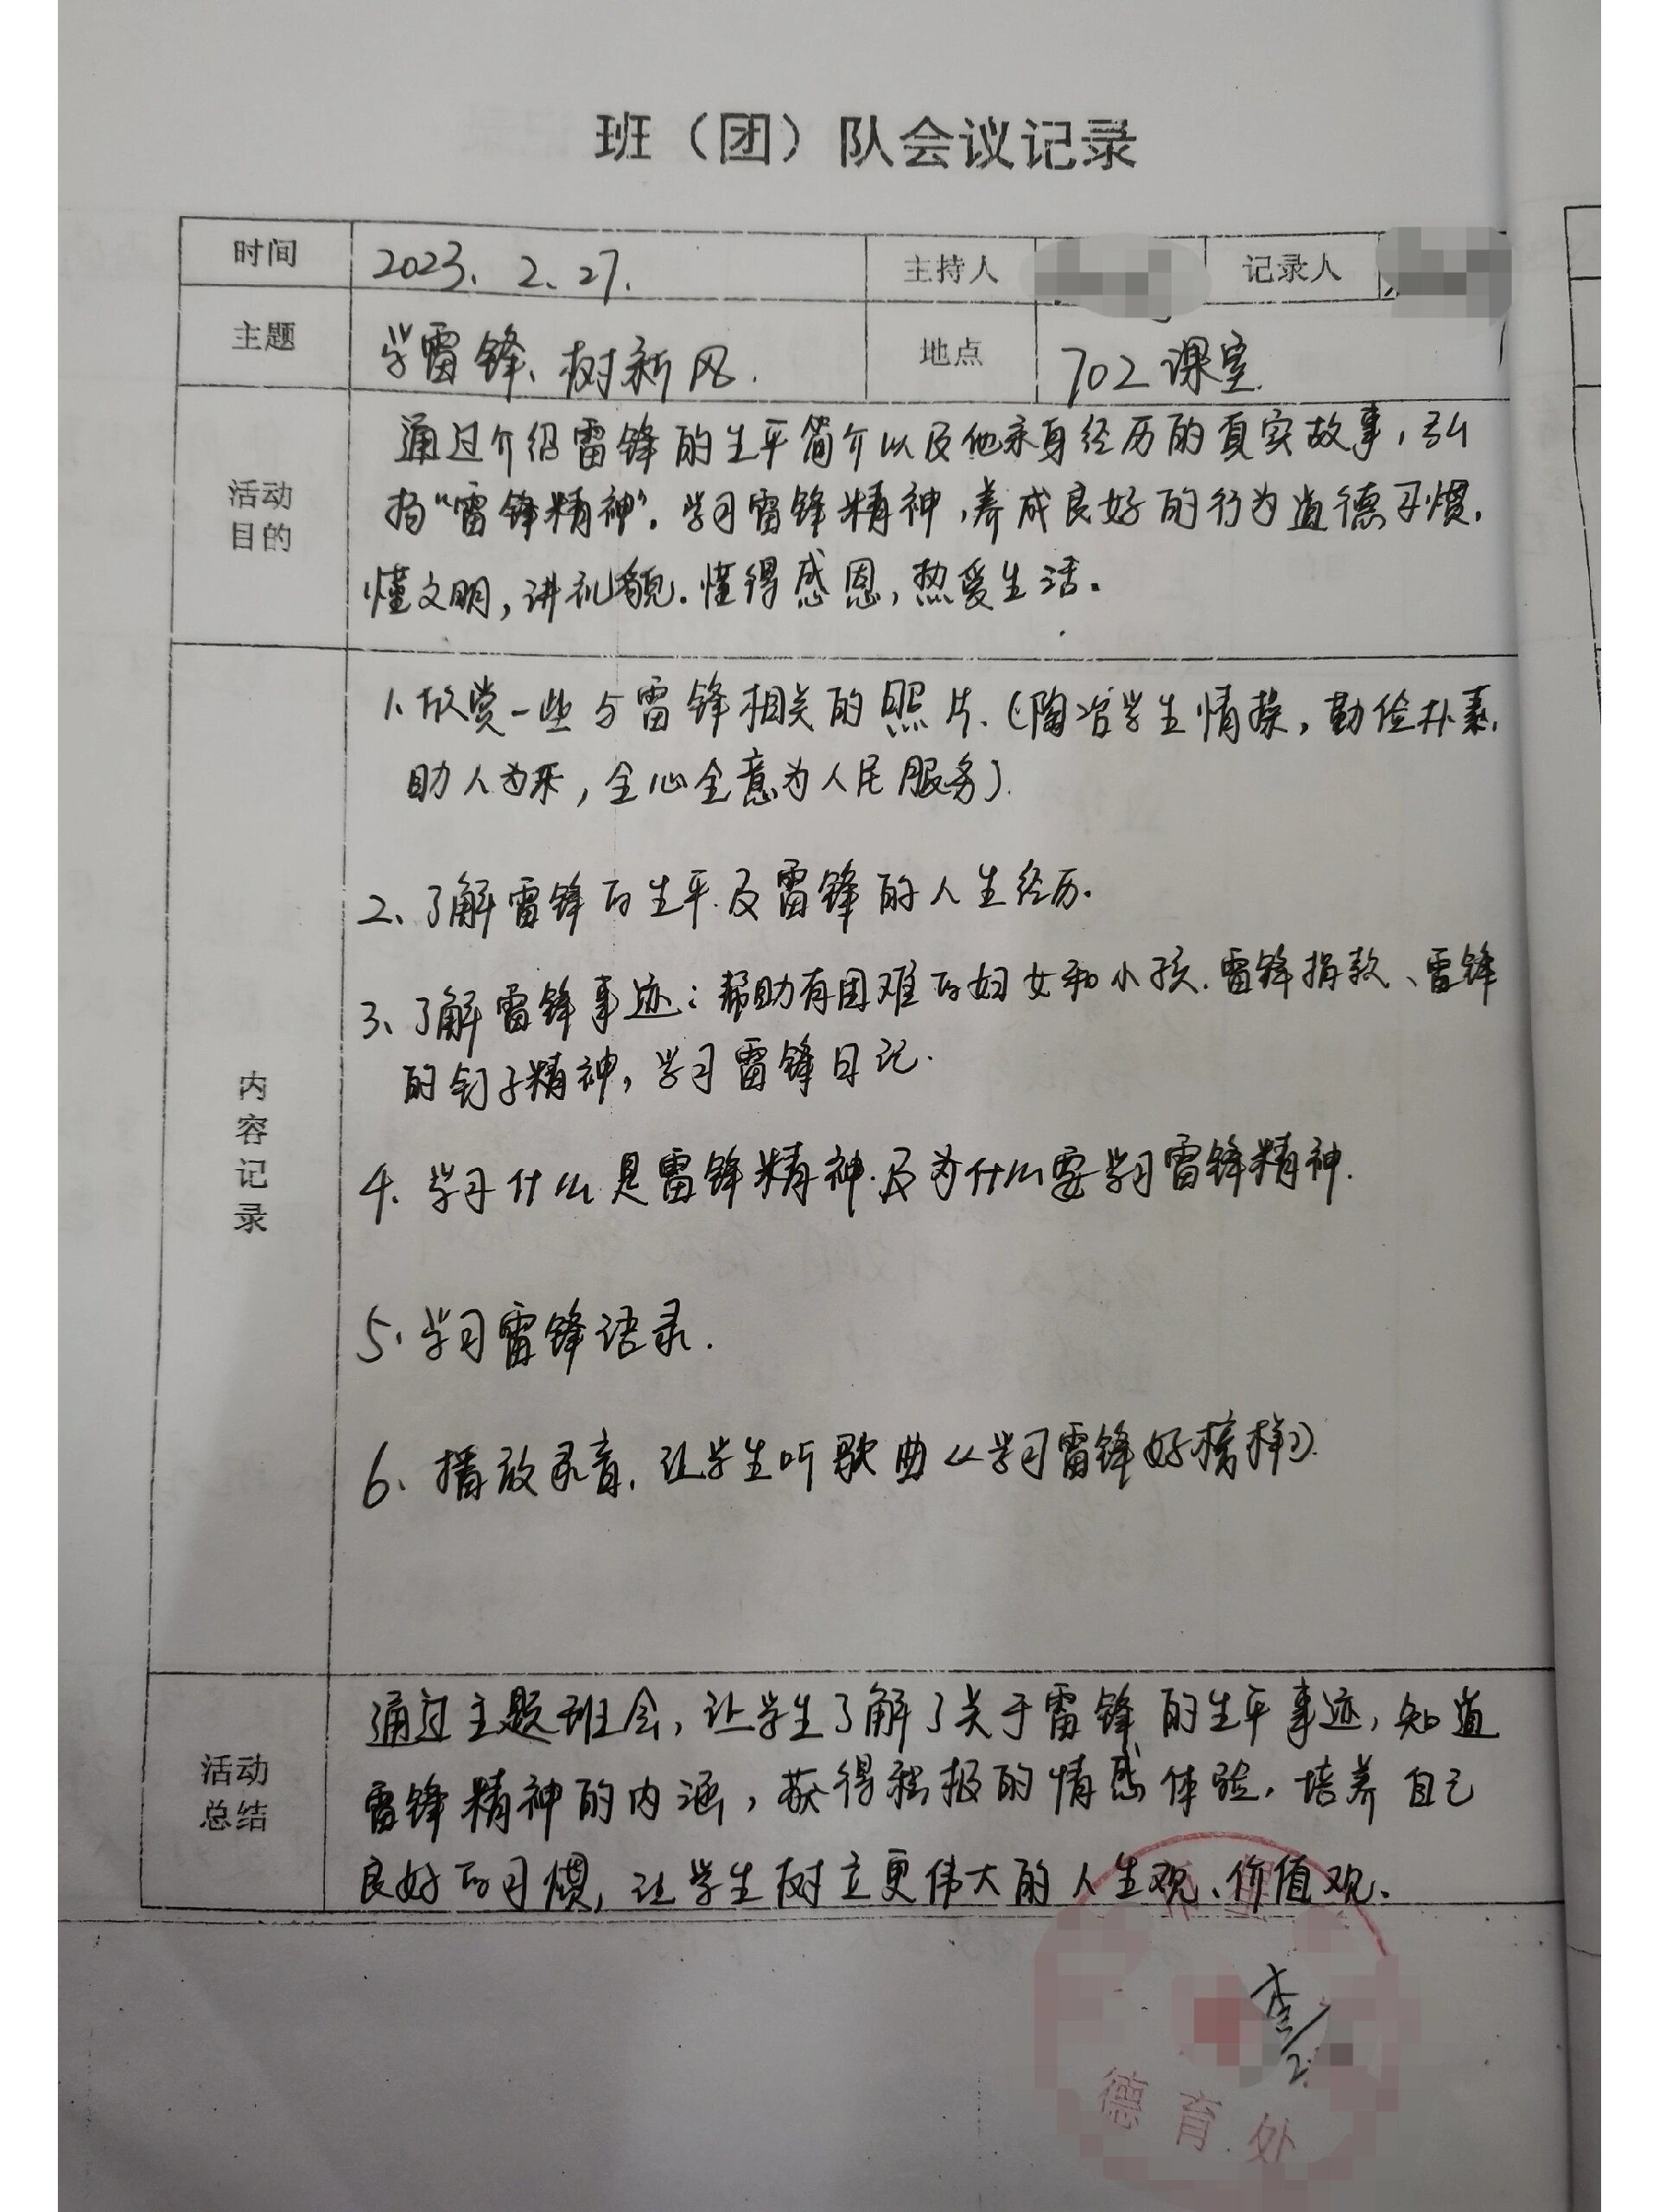 班（团）队会议记录
时间 2023.2.27. 主持人 记录人
主题 学雷锋、树新风. 地点 702课室.
活动目的
通过介绍雷锋的生平简介以及他亲身经历的真实故事，弘
扬“雷锋精神”。学习雷锋精神，养成良好的行为道德习惯.
懂文明，讲礼貌.懂得感恩，热爱生活。
内容记录
1.欣赏一些与雷锋相关的照片.（陶冶学生情操，勤俭朴素,
助人为乐，全心全意为人民服务）.
2、了解雷锋的生平.及雷锋的人生经历.
3、了解雷锋事迹：帮助有困难的妇女和小孩.雷锋捐款、雷锋
的钉子精神，学习雷锋日记.
4. 学习什么是雷锋精神.及为什么要学习雷锋精神.
5.学习雷锋语录.
6、播放录音.让学生听歌曲《学习雷锋好榜样》.
活动总结
通过主题班会，让学生了解了关于雷锋的生平事迹，知道
雷锋精神的内涵，获得积极的情感体验.培养自己
良好的习惯，让学生树立更伟大的人生观、价值观.
德育处